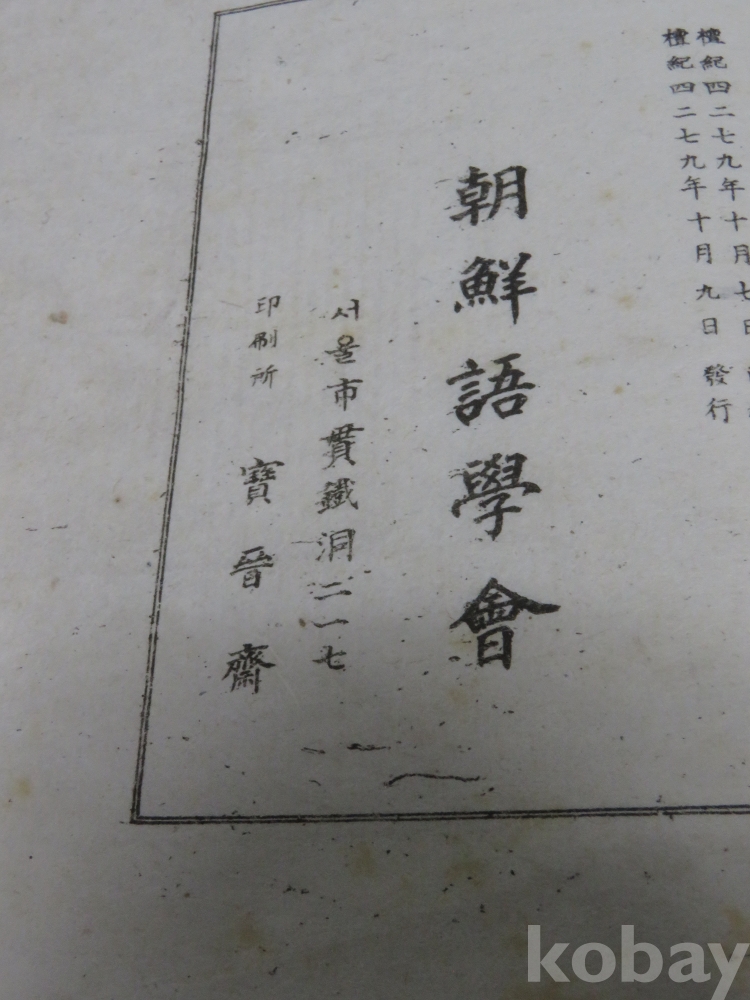 檀紀四二七九年十月七日
檀紀四二七九年十月九日 發行
朝鮮語學會
서울市貫鐵洞二一七
印刷所 寶晉齋
kobay